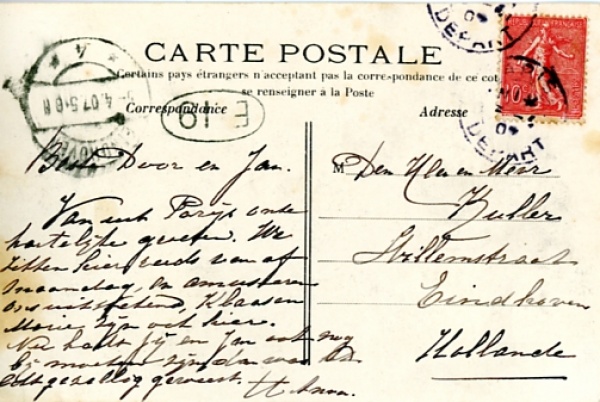 CARTE POSTALE
Certains pays étrangers n'acceptant pas la correspondance de ce cot
se renseigner à la Poste
Correspondance
Adresse
E 19
DEPART
DEPART
10c
4.07.5
Door en Jan.
Van uit Parijs onze
hartelijke groeten. We
zitten hier reeds van af
maandag, en amuseeren
ons uitstekend, Klaas en
Marie zijn ook hier.
Nu hadt jij en Jan ook nog
bij moeten zijn dan was het
echt gezellig geweest.
M Den Heer en Mevr
Kuller
Willemstraat
Eindhoven
Hollande